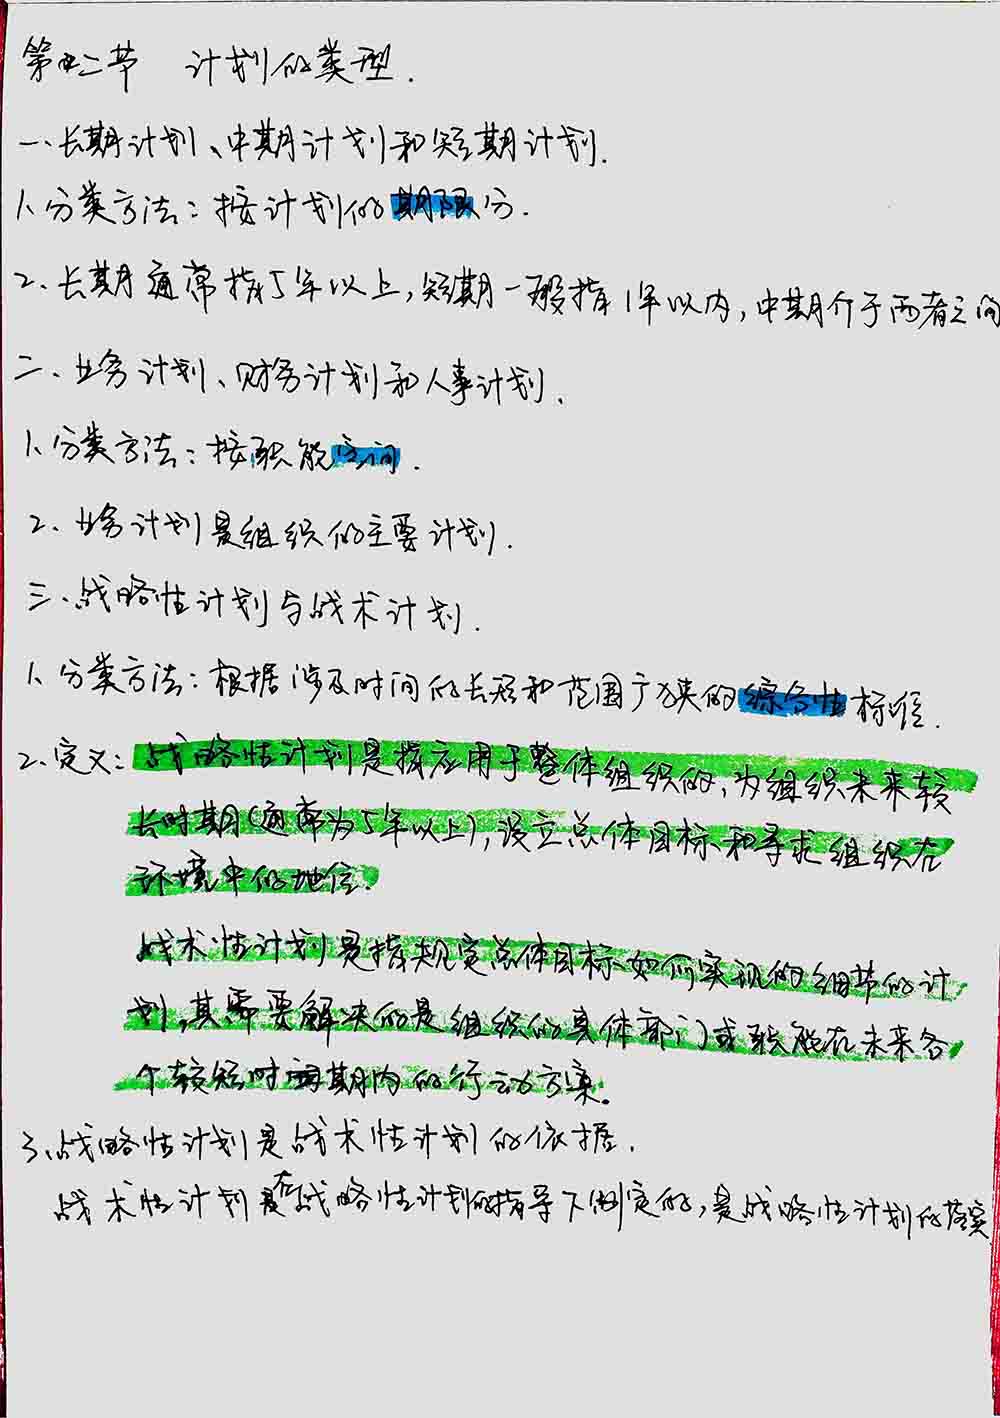 第二节 计划的类型.
一、长期计划、中期计划和短期计划.
1、分类方法：按计划的期限分.
2、长期通常指5年以上,短期一般指1年以内,中期介于两者之间
二、业务计划、财务计划和人事计划.
1、分类方法：按职能空间.
2、业务计划是组织的主要计划.
三、战略性计划与战术计划.
1、分类方法：根据涉及时间的长短和范围广狭的综合性标准.
2、定义：战略性计划是指应用于整体组织的,为组织未来较
长时期(通常为5年以上),设立总体目标和寻求组织在
环境中的地位.
战术性计划是指规定总体目标如何实现的细节的计
划,其需要解决的是组织的具体部门或职能在未来各
个较短时期内的行动方案.
3、战略性计划是战术性计划的依据.
战术性计划是在战略性计划的指导下制定的,是战略性计划的落实